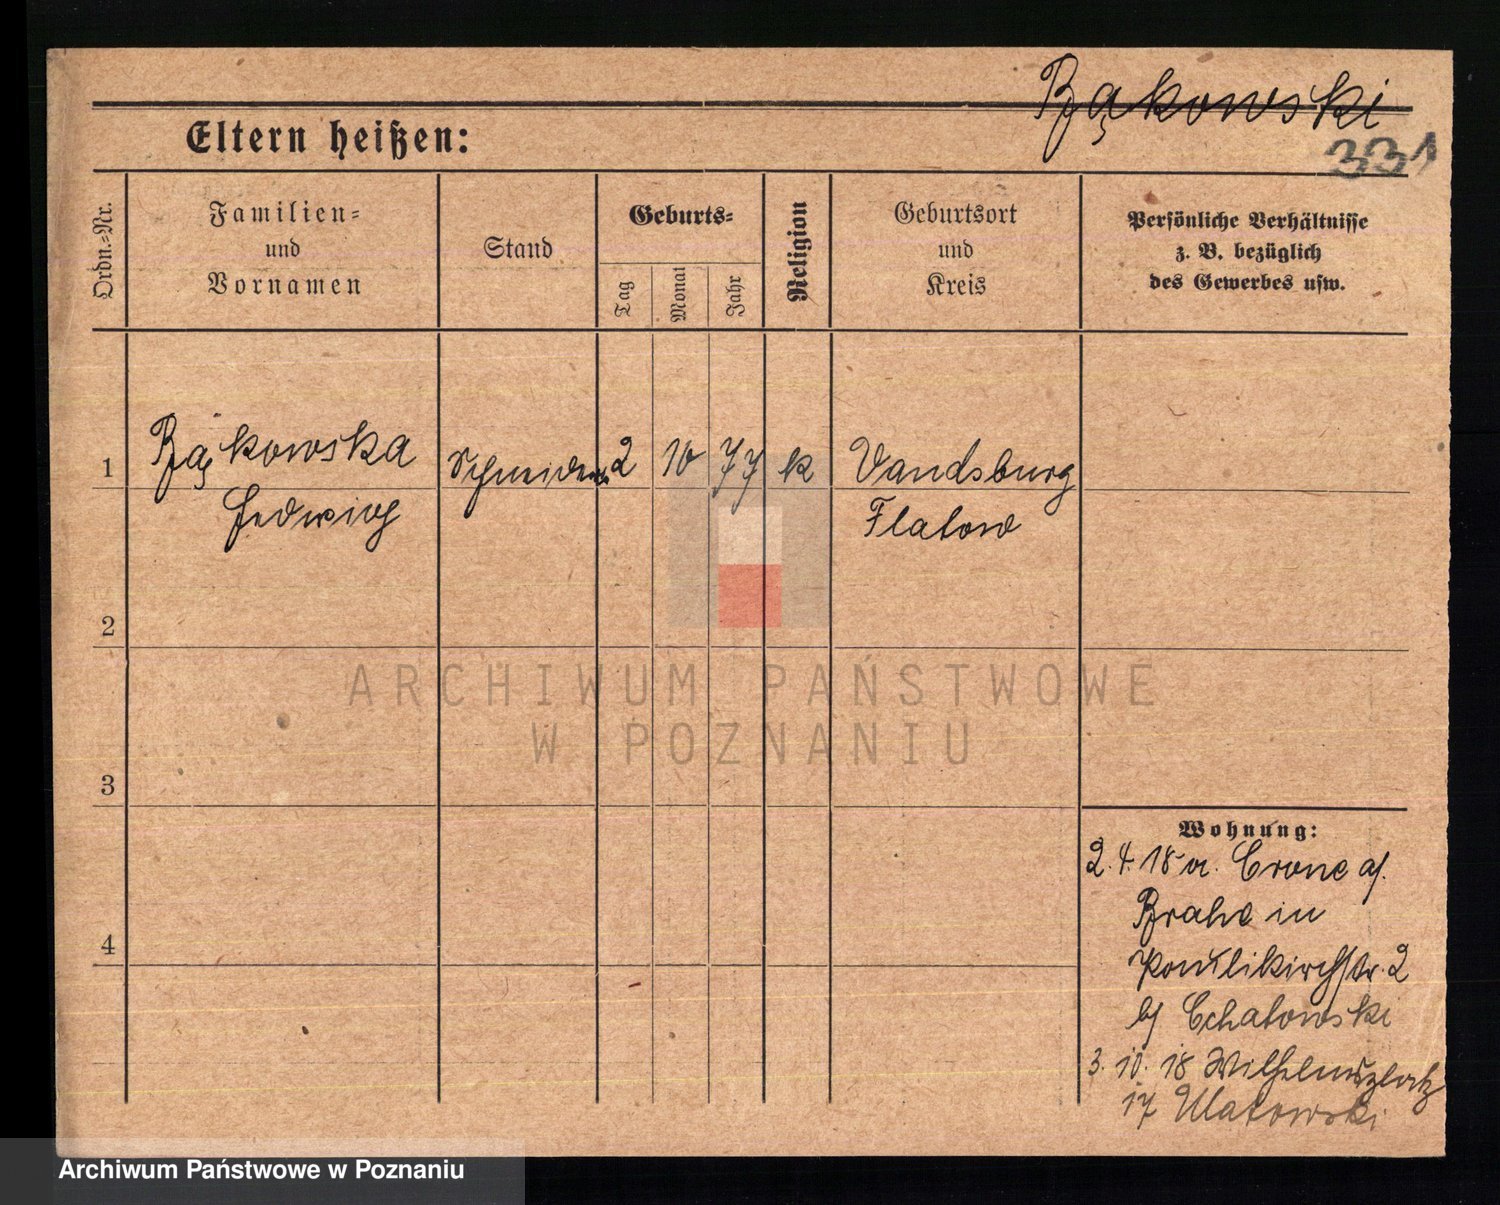 Bąkowski
Eltern heißen:
331
Ordn.=Nr.
Familien=
und
Vornamen
Stand
Geburts=
Tag
Monat
Jahr
Religion
Geburtsort
und
Kreis
Persönliche Verhältnisse
z. B. bezüglich
des Gewerbes usw.
1 Bąkowska 2 10 77 k Vandsburg
Hedwig Flatow
2
3
4
ARCHIWUM PAŃSTWOWE
W POZNANIU
Wohnung:
2. 4. 18 v. Crone a/.
Brahe in
Paulikirchstr. 2
b/
3. 10. 18 Wilhelmsplatz
17
Archiwum Państwowe w Poznaniu